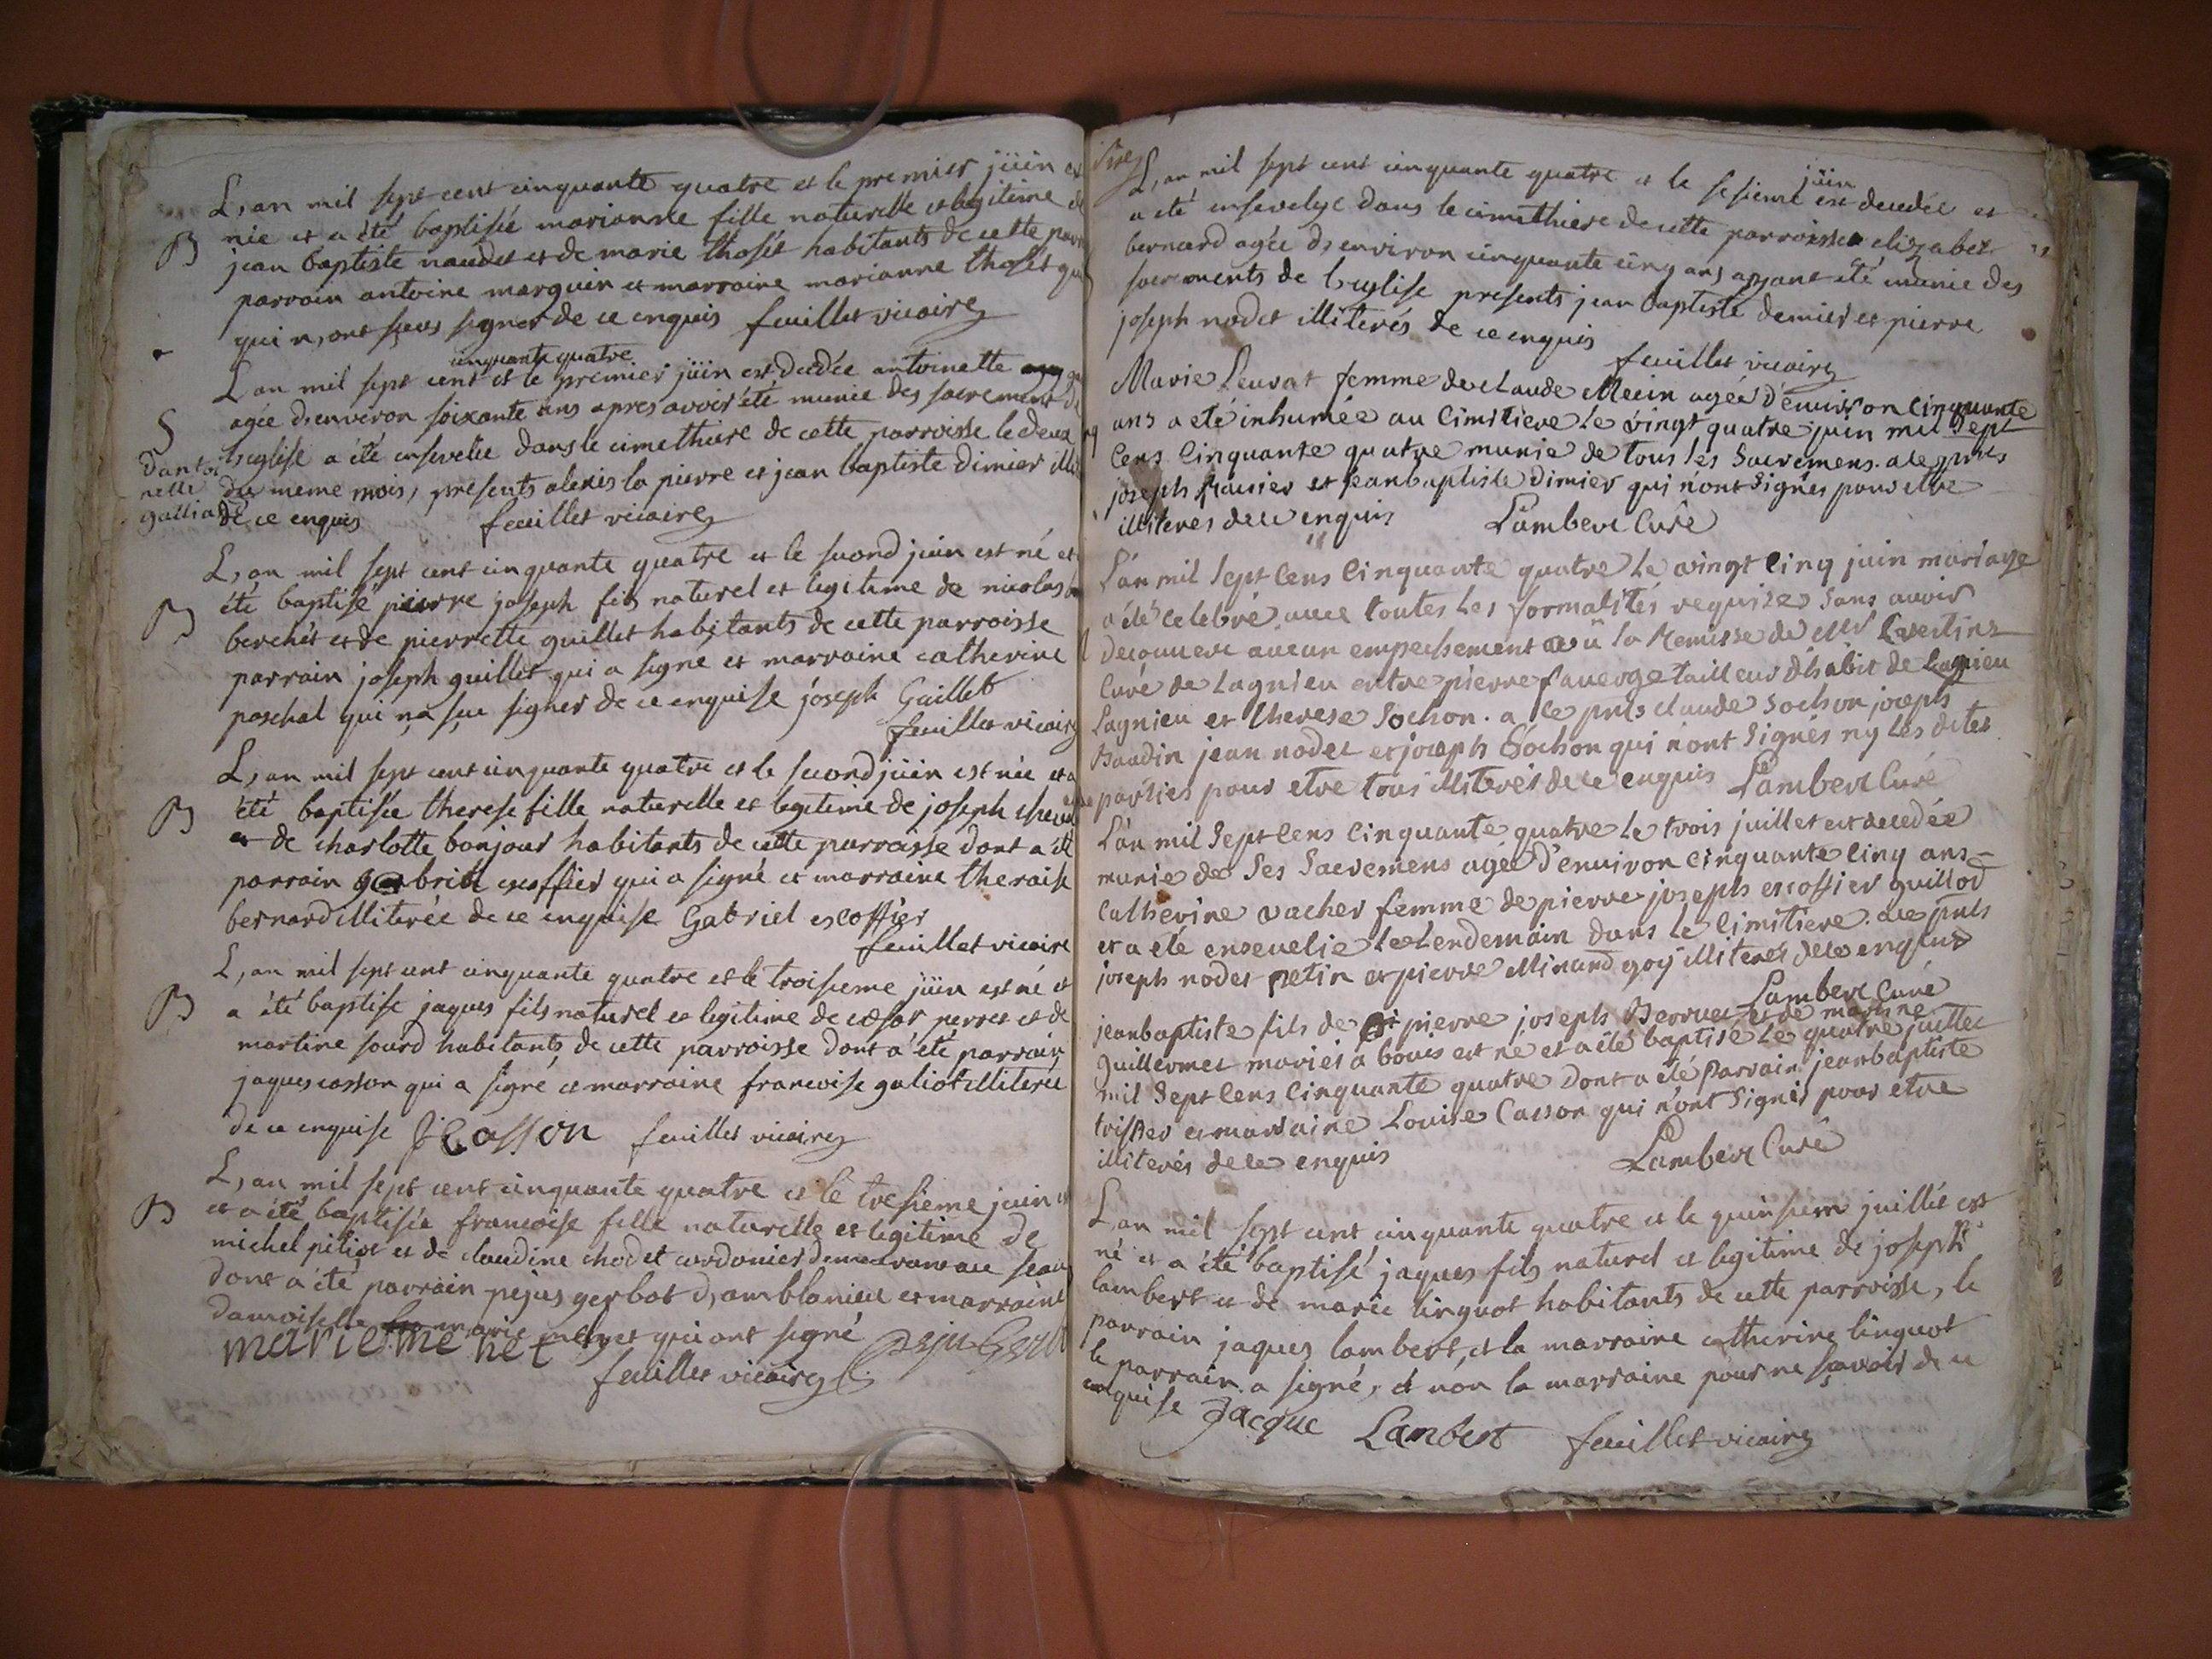 L,an mil sept cent cinquante quatre et le premier jüin
née et a été baptisée marianne fille naturelle et legitime
B
jean baptiste naudet et de marie thoset habitants de cette
parrain antoine marguin et marraine marianne thoset
qui n,ont sçeus signer de ce enquis feuillet vicaire
cinquante quatre
L an mil sept cent et le premier jüin est decedée antoinette
agée d,environ soixante ans apres avoir été munie des sacrements
S
l,eglise a été ensevelie dans le cimethiere de cette parroisse le deux
d'antoi
nette
gallia
du meme mois, presents alexis la pierre et jean baptiste dimier
de ce enquis feuillet vicaire
L,an mil sept cent cinquante quatre et le second juin est né et
été baptisé pierre joseph fils naturel et legitime de nicolas
B
berchét et de pierrette guillet habitants de cette parroisse
parrain joseph guillet qui a signé et marraine catherine
paschal qui n,a sçu signer de ce enquise joseph Guillet
feuillet vicaire
L,an mil sept cent cinquante quatre et le second jüin est née et a
B
été baptisée therese fille naturelle et legitime de joseph
et de charlotte bonjour habitants de cette parroisse dont a été
parrain gabriel escoffier qui a signé et marraine theraise
bernard illiterée de ce enquise Gabriel escoffier
feuillet vicaire
L,an mil sept cent cinquante quatre et le troisieme jüin est né et
B
a été baptisé jaques fils naturel et legitime de cæsar perret et de
martine sourd habitants de cette parroisse dont a été parrain
jaques casson qui a signé et marraine francoise galiot illiterée
de ce enquise J Casson feuillet vicaire
L,an mil sept cent cinquante quatre et le tresieme juin
B
et a été baptisée francoise fille naturelle et legitime de
michel pitiot et de claudine chodet cordonier demeurant au
dont a été parrain pejus gerbot d,amblanieu et marraine
damoiselle marie menet qui ont signé
marie me net
feuillet vicaire
L,an mil sept cent cinquante quatre et le sesieme jüin est decedée et
a été ensevelye dans le cimethiere de cette parroisse elizabet
bernard agée d,environ cinquante cinq ans ayant été munie des
sacrements de l,eglise presents jean baptiste demier et pierre
joseph nodet illiterés de ce enquis
feuillet vicaire
Marie Leurat femme de claude Mecin agée d'environ cinquante
ans a eté inhumée au Cimitiere le vingt quatre juin mil Sept
Cens Cinquante quatre munie de tous les Sacremens. a ce prnts
joseph et jeanbaptiste dimier qui n'ont Signés pour etre
illiteres de ce enquis Lambert Curé
L'an mil Sept Cens Cinquante quatre le vingt cinq juin mariage
a été celebré avec toutes les formalités requises Sans avoir
decouvert aucun empechement vû la Remisse de Mr
Curé de Lagnieu entre pierre fauerge tailleur d'habit de Lagnieu
Lagnieu et therese Sochon. a ce prnts claude Sochon joseph
Baudin jean nodet et joseph Sochon qui n'ont Signés ny les dites
parties pour etre tous illiterés de ce enquis Lambert Curé
L'an mil Sept Cens Cinquante quatre le trois juillet est decedée
munie de Ses Sacremens agée d'environ cinquante cinq ans
Catherine vacher femme de pierre joseph escoffier guillod
et a été ensevelie le lendemain dans le Cimitiere. a ce prnts
joseph nodet petin et pierre Minand goy illiterés de ce enquis
Lambert Curé
jeanbaptiste fils de pierre joseph Berruet et de martine
Guillermet mariés a boues est né et a été baptisé le quatre juillet
mil Sept Cens Cinquante quatre dont a été Parrain jeanbaptiste
et marraine Louise Casson qui n'ont Signés pour etre
illiterés de ce enquis Lambert Curé
L an mil sept cent cinquante quatre et le quinsiem juillét est
né et a été baptisé jaques fils naturel et legitime de joseph
lambert et de marie linquot habitants de cette parroisse, le
parrain jaques lambert, et la marraine catherine linquot
le parrain a signé, et non la marraine pour ne sçavoir de ce
enquise Jacque Lambert feuillet vicaire